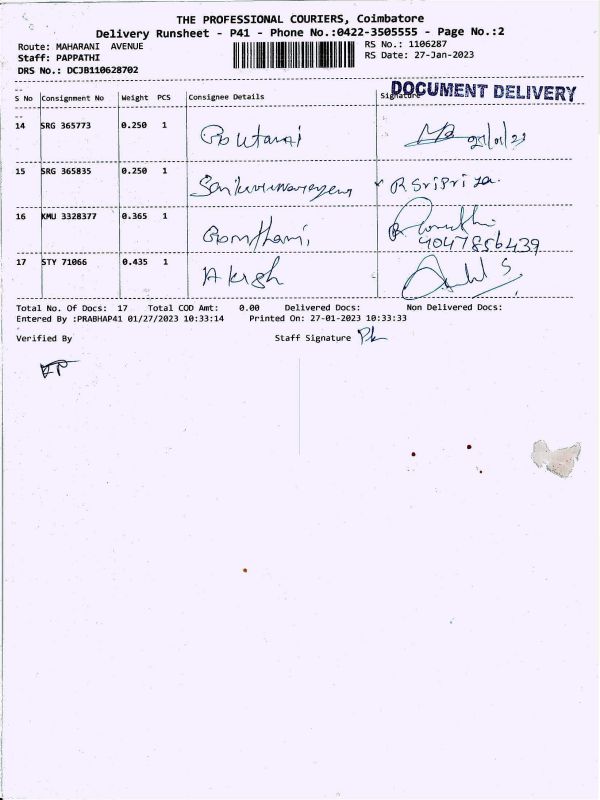 THE PROFESSIONAL COURIERS, Coimbatore
Delivery Runsheet - P41 - Phone No.:0422-3505555 - Page No.:2
Route: MAHARANI AVENUE RS No.: 1106287
Staff: PAPPATHI RS Date: 27-Jan-2023
DRS No.: DCJB110628702
DOCUMENT DELIVERY
S No Consignment No Weight PCS Consignee Details Signature
14 SRG 365773 0.250 1
15 SRG 365835 0.250 1 R Sripriya.
16 KMU 3328377 0.365 1 Gomthami,
9047856439
17 STY 71066 0.435 1 Akash
Total No. Of Docs: 17 Total COD Amt: 0.00 Delivered Docs: Non Delivered Docs:
Entered By :PRABHAP41 01/27/2023 10:33:14 Printed On: 27-01-2023 10:33:33
Verified By Staff Signature